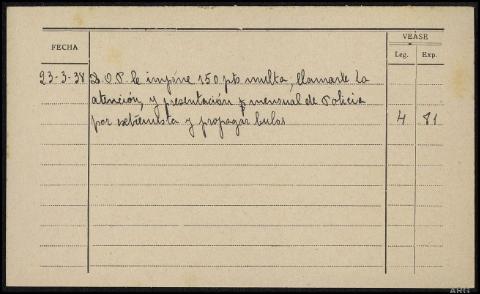 VÉASE
FECHA
Leg. Exp.
23-3-38 D.O.P. le impine 150 pts multa, llamarle la
atención, y presentación mensual de Policia
por extremista y propagar bulos 4 81